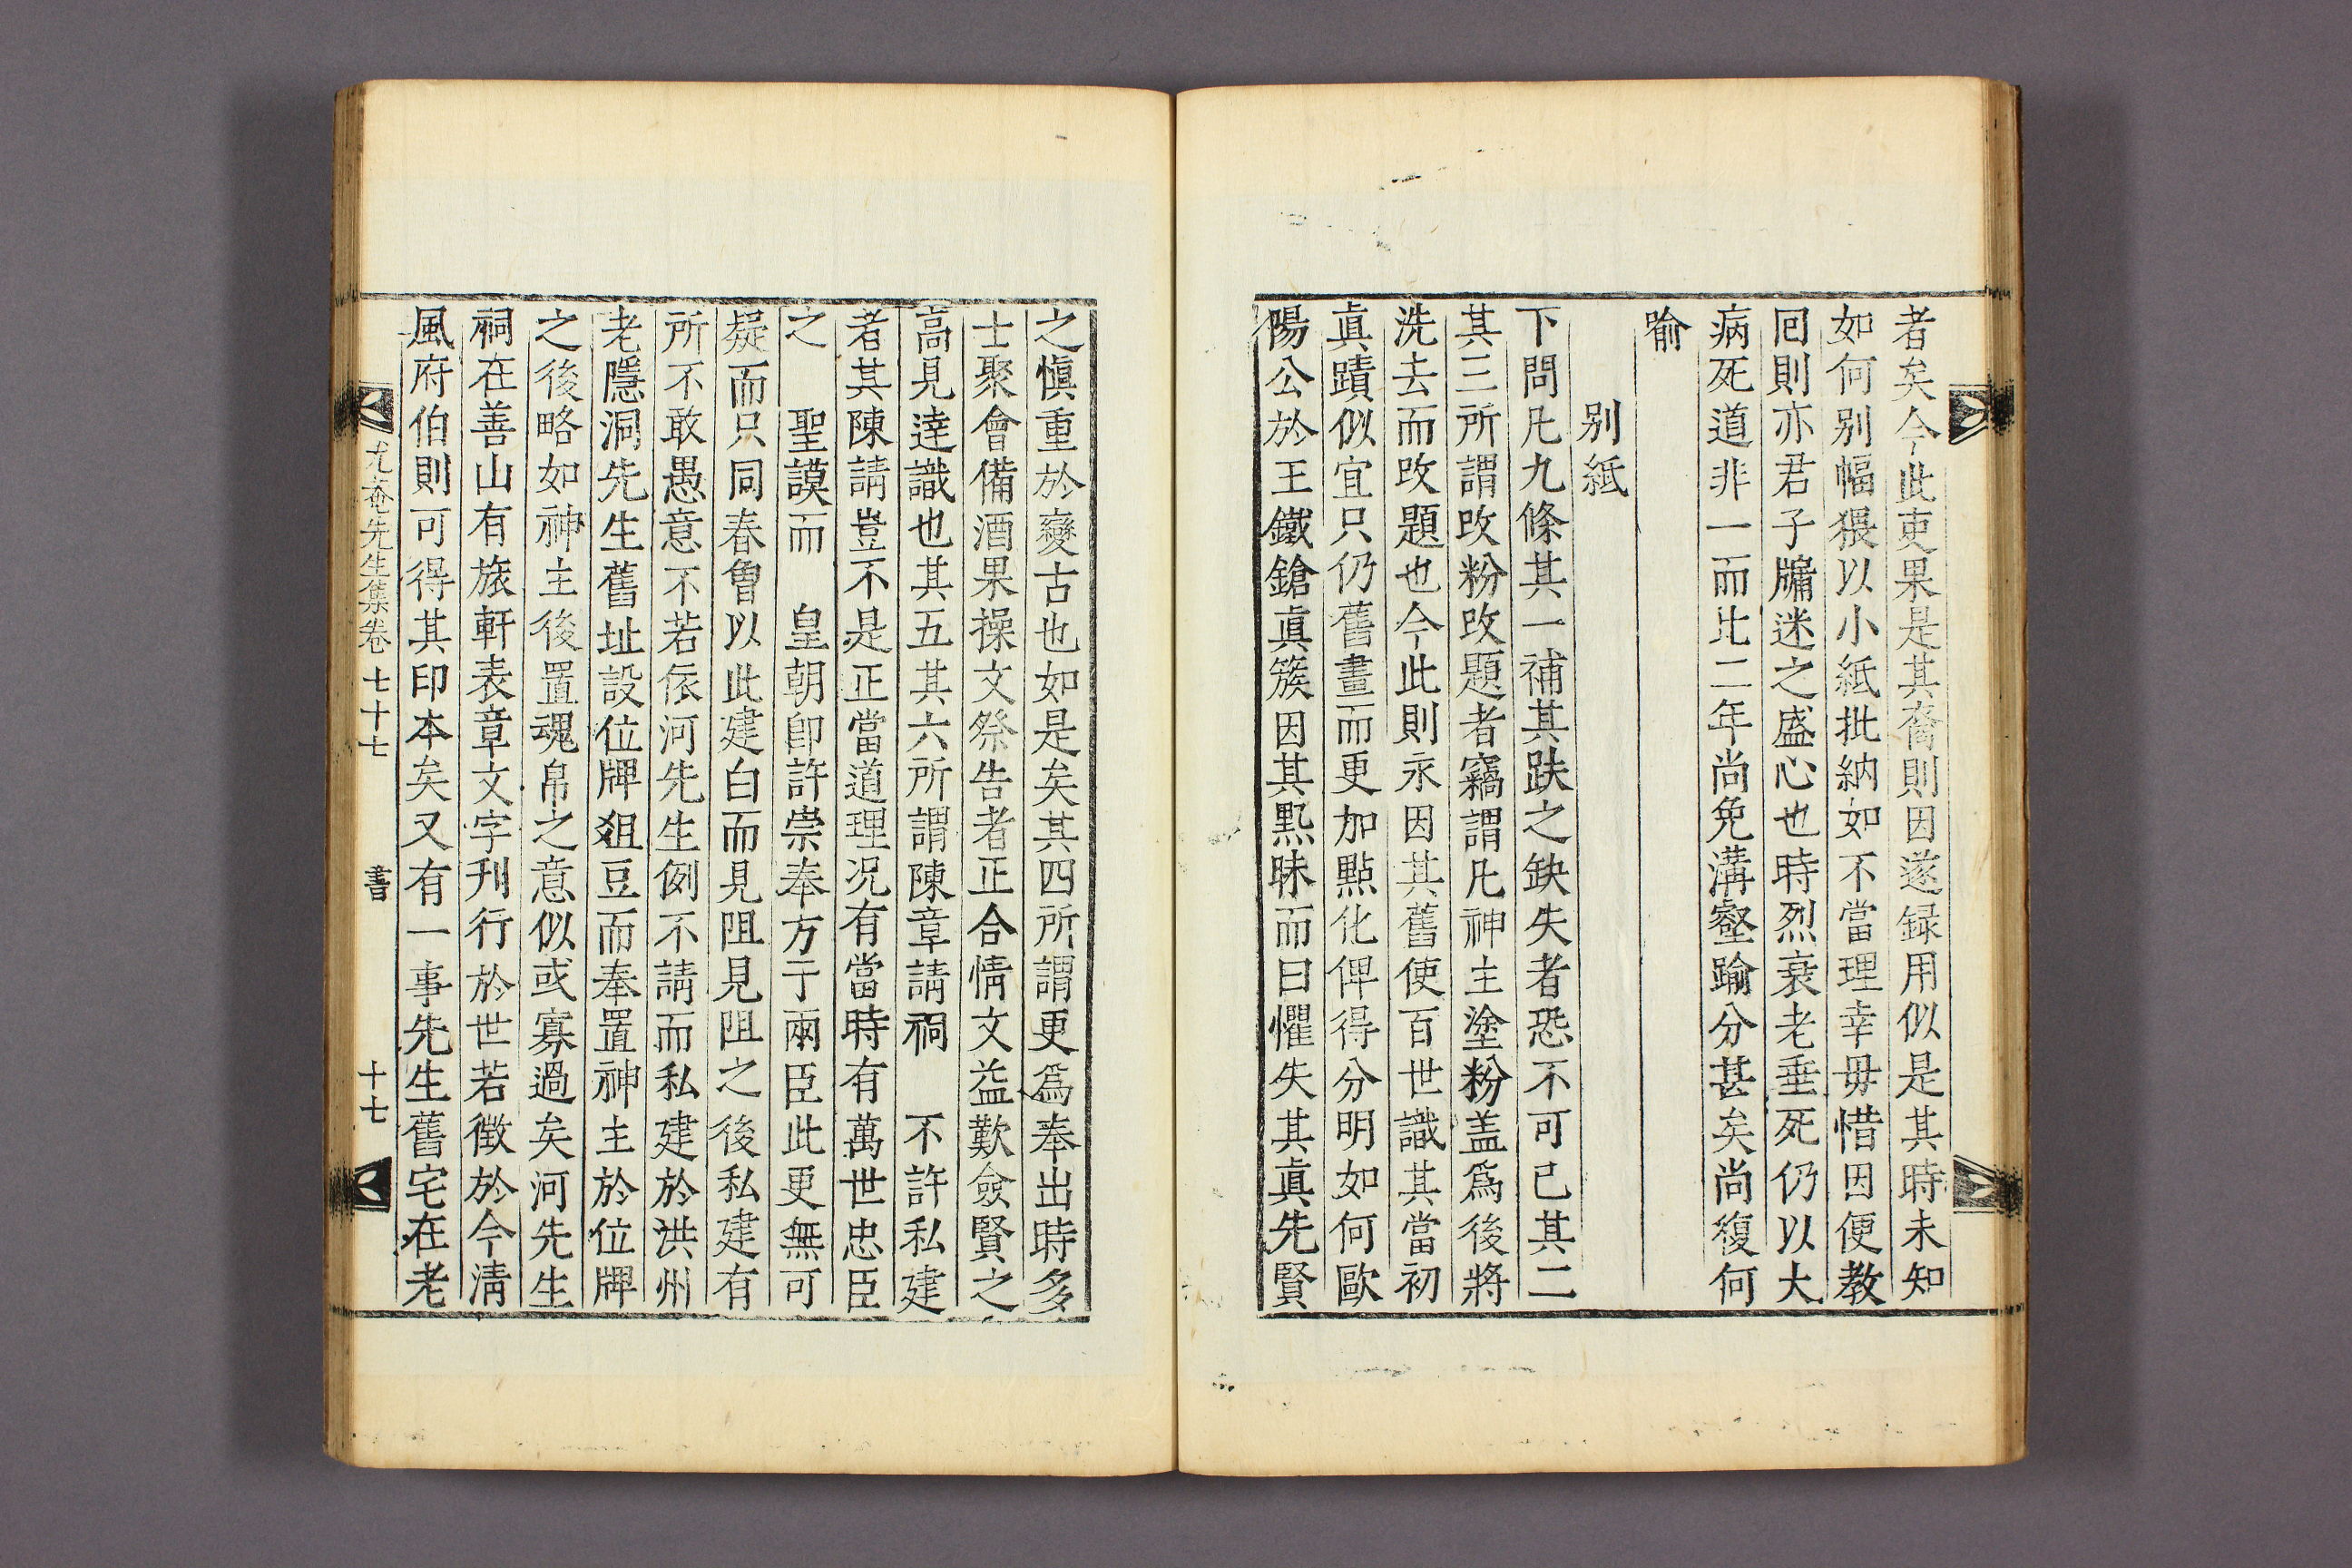 者矣今此吏果是其裔則因遂録用似是其時未知
如何别幅猥以小紙批納如不當理幸毋惜因便教
囘則亦君子牖迷之盛心也時烈衰老垂死仍以大
病死道非一而比二年尚免溝壑踰分甚矣尚復何
喻
别紙
下問凡九條其一補其趺之缺失者恐不可已其二
其三所謂改粉改題者竊謂凡神主塗粉盖爲後將
洗去而改題也今此則永因其舊使百世識其當初
眞蹟似宜只仍舊畫而更加點化俾得分明如何歐
陽公於王鐵鎗眞簇因其㸃昧而曰懼失其眞先賢
之愼重於變古也如是矣其四所謂更爲奉出時多
士聚會備酒果操文祭告者正合情文益歎僉賢之
高見達識也其五其六所謂陳章請祠 不許私建
者其陳請豈不是正當道理况有當時有萬世忠臣
之 聖謨而 皇朝卽許崇奉方于兩臣此更無可
疑而只同春曾以此建白而見阻見阻之後私建有
所不敢愚意不若依河先生例不請而私建於洪州
老隱洞先生舊址設位牌俎豆而奉置神主於位牌
之後略如神主後置魂帛之意似或寡過矣河先生
祠在善山有旅軒表章文字刋行於世若徵於今淸
風府伯則可得其印本矣又有一事先生舊宅在老
尤菴先生集卷七十七 書 十七